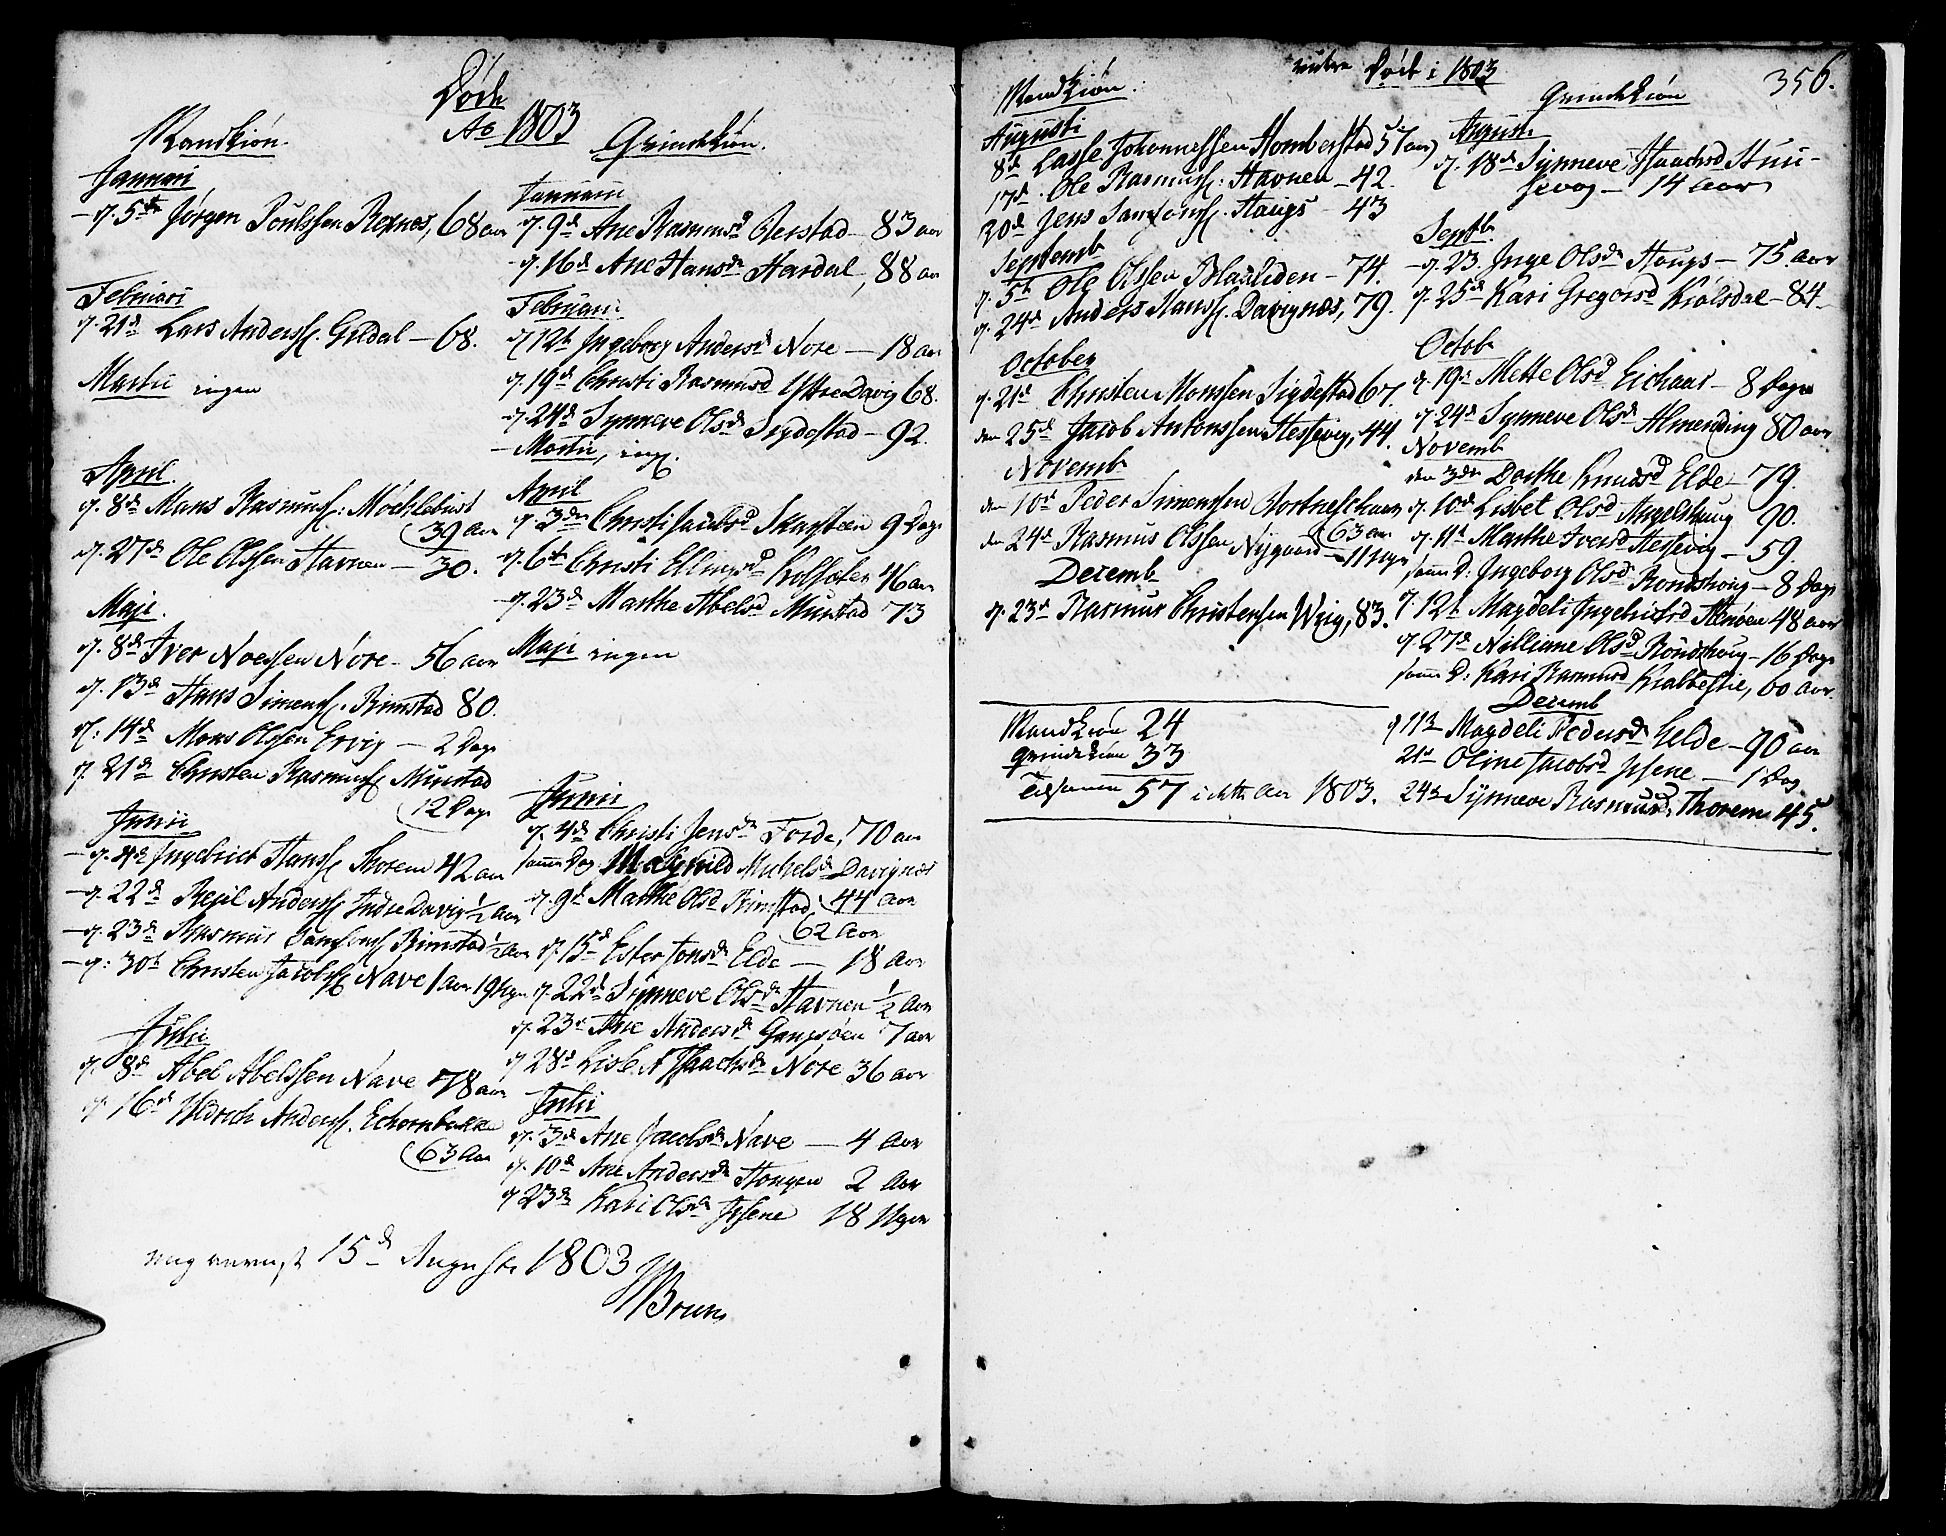 Døde
Ao 1803
Mandkiøn.
Januari
d. 5te Jørgen Poulssen Rexnæs, 68 aar
Februari
d. 21de Lars Anderss. Gildal – 68.
Martii ingen
April.
d. 8de Mons Rasmuss: Möchlebust
(39 Aar
d. 27de Ole Olssen Havnen – 30.
Maji.
d. 8de Iver Noessen Nore – 56 aar
d. 13de Hans Simenss. Rimstad 80.
d: 14de Mons Olssen Ervig – 2 Dage
d. 21de Christen Rasmuss Munstad
(12 Dage
Junii
d. 4de Ingebrict Hanss Thorem 42 aar
d. 22de Anderss Indre Davig ½ Aar
d. 23de Rasmus Rimstad ½ Aar
d: 30te Christen Jacobss Nave 1 aar 19 Uger
Julii
d. 8de Abel Abelssen Nave 78 aar
d. 16de Anderss. Echornbakke
(63 Aar
Qvindekiøn.
Januarii
d. 9de Ane Rasmusd. Oerstad – 83 aar
d. 16de Ane Hansdr Hardal, 88 aar
Februari:
d. 12te Ingeborg Andersd Nore – 18 Aar
d. 19de Christi Rasmusd Yttre Davig 68.
d. 24de Synneve Olsdr Sigdestad – 92.
Martii, ingen.
April
d. 3die Christi Jacobsd Skarsteen 9 Dage
d. 6te Christi Ellingsd Kolseten 46 aar
d. 23de Marthe Abelsd Munstad 73
Maji ingen
Junii
d. 4de Christi Jensdr Forde, 70 aar
samme Dag Michelsdr Davignæs
(44 Aar
d. 9de Marthe Olsd Rimstad
(62 Aar
d. 15de Ester Jonsdr Elde – 18 Aar
d. 22de Synneve Olsdr Havnen ½ Aar
d. 23de Ane Andersdr Gangsøen 7 aar
d. 28de Lisbet Isaachsdr Nore 36 aar
Julii
d. 3de Ane Jacobsdr Nave – 4 Aar
d. 10de Ane Andersdr Hougen 2 Aar
d. 23de Kari Olsdr 18 Uger
15de Augusti 1803
Bruun
356.
videre Død i 1803
Mandkiøn.
Augusti
8de Lasse Johannessen Homberstad 57 aar
17de. Ole Rasmuss: Havnen – 42.
30de Jens Samsonss. Haugs – 43
Septemb
d. 5te Ole Olssen Blaaliden – 74.
d. 24de Anders Hanss. Davignæs, 79.
October
d. 21de Christen Monssen Sigdestad 67.
den 25de Jacob Antonssen Hessevig, 44.
Novemb
den 10de Peder Simenssen
(63 aar
den 24de Rasmus Olssen Nygaard – 11 Uger
Decemb
d. 23de Rasmus Christenssen Wiig, 83.
Mandkiøn 24
Qvindekiøn 33
Tilsammen 57 i dette Aar 1803.
Qvindekiøn
August.
d. 18de Synneve Isaachsd Huu-
sevog – 14 Aar
Septb.
d. 23. Inge Olsdr Haugs – 75. Aar
d. 25de Kari Gregorsd Kiølsdal – 84
Octob
d. 19de Mette Olsd Eichaas – 8 Dage
d. 24de Synneve Olsdr Almending 80 aar
Novemb
den 3die Dorthe Knudsd Elde – 79.
d. 10de Lisbet Olsd Angelshaug 90.
d. 11te Marthe Iversd Hessevig – 59.
samme D: Ingeborg Olsd Rondshoug – 8 Dage
d. 12te Magdeli Ingebrictsd Stenøen 48 aar
d. 27de Nilliane Olsd Rondshoug – 16 Dage
samme D: Kari Rasmusd 60 Aar.
Decemb
d 11te Magdeli Pedersdr Gelde – 90 aar
21de Oline Jacobsd – 1 Dag
24de Synneve Rasmusd. Thorem 45.